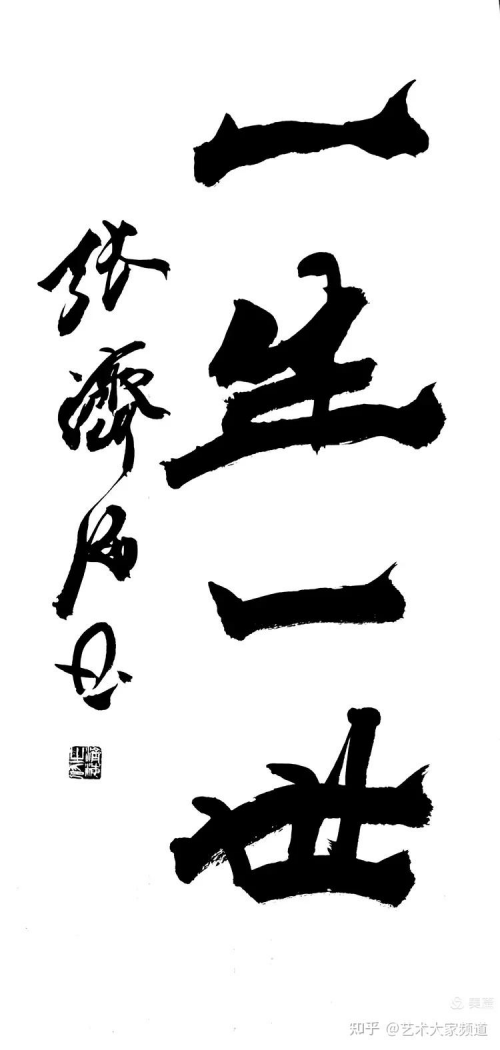 一生一世
张濟海书
美篇
知乎 @艺术大家频道